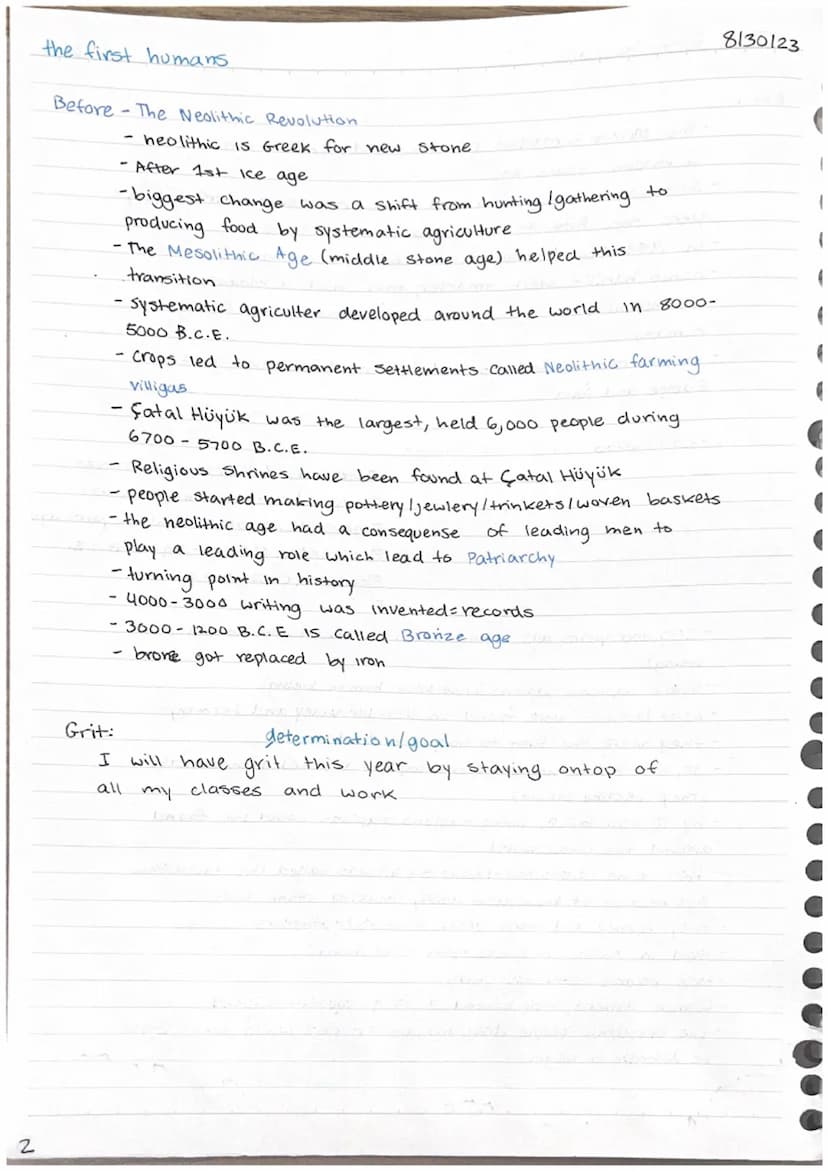 the first humans
8/30/23
Before - The Neolithic Revolution
- neolithic is Greek for new stone
- After 1st ice age
- biggest change was a shift from hunting/gathering to
producing food by systematic agriculture
- The Mesolithic Age (middle stone age) helped this
transition
- systematic agriculter developed around the world in 8000-
5000 B.C.E.
- crops led to permanent settlements called Neolithic farming
villigas
- Çatal Hüyük was the largest, held 6,000 people during
6700 - 5700 B.C.E.
- Religious shrines have been found at Çatal Hüyük
- people started making pottery/jewlery/trinkets/woven baskets
- the neolithic age had a consequense of leading men to
play a leading role which lead to Patriarchy
- turning point in history
- 4000-3000 writing was invented = records
- 3000 - 1200 B.C.E is called Bronze age
- bronze got replaced by iron
Grit:
determination/goal
I will have grit this year by staying ontop of
all my classes and work
2